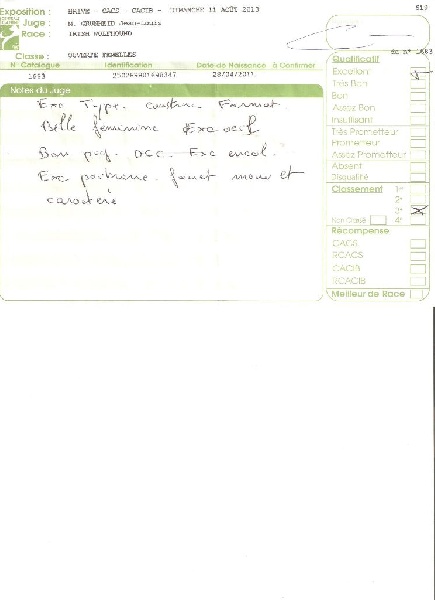 Exposition : BRIVE - CACS - CACIB - DIMANCHE 11 AOÛT 2013
Juge : M. Jean-Louis
Race : IRISH WOLFHOUND
Classe : OUVERTE FEMELLES
N° Catalogue Identification Date de Naissance à Confirmer
1663 28/04/2011
Notes du Juge
Exc Type. Constru. Format.
Belle féminine Exc
Bon Exc encol.
Exc poitrine. fouet et
caractère
Qualificatif
Excellent
Très Bon
Bon
Assez Bon
Insuffisant
Très Prometteur
Prometteur
Assez Prometteur
Absent
Disqualifié
Classement 1°
2°
3° X
Non Classé 4°
Récompense
CACS
RCACS
CACIB
RCACIB
Meilleur de Race